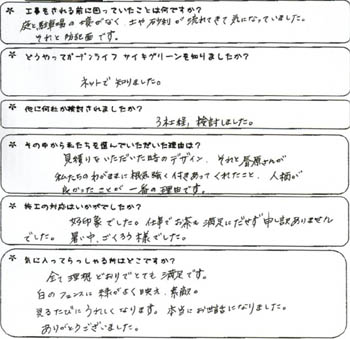 * 工事をされる前に困っていたことは何ですか?
庭と駐車場の境がなく 土や砂利が流れてきて気になっていました。
それと防犯面です。
* どうやってガーデンライフ サイキグリーンを知りましたか?
ネットで知りました。
* 他に何社か検討されましたか?
3社程、検討しました。
* その中から私たちを選んでいただいた理由は?
見積りをいただいた時のデザイン、それと
私たちのわがままに根気強く付きあってくれたこと、人柄が
良かったことが一番の理由です。
* 施工の対応はいかがでしたか?
好印象でした。仕事でお茶も満足にだせず申し訳ありません
でした。暑い中、ごくろう様でした。
* 気に入ってらっしゃる所はどこですか?
全て理想どおりでとても満足です。
白のフェンスに緑がよく映え、素敵。
見るたびにうれしくなります。本当にお世話になりました。
ありがとうございました。